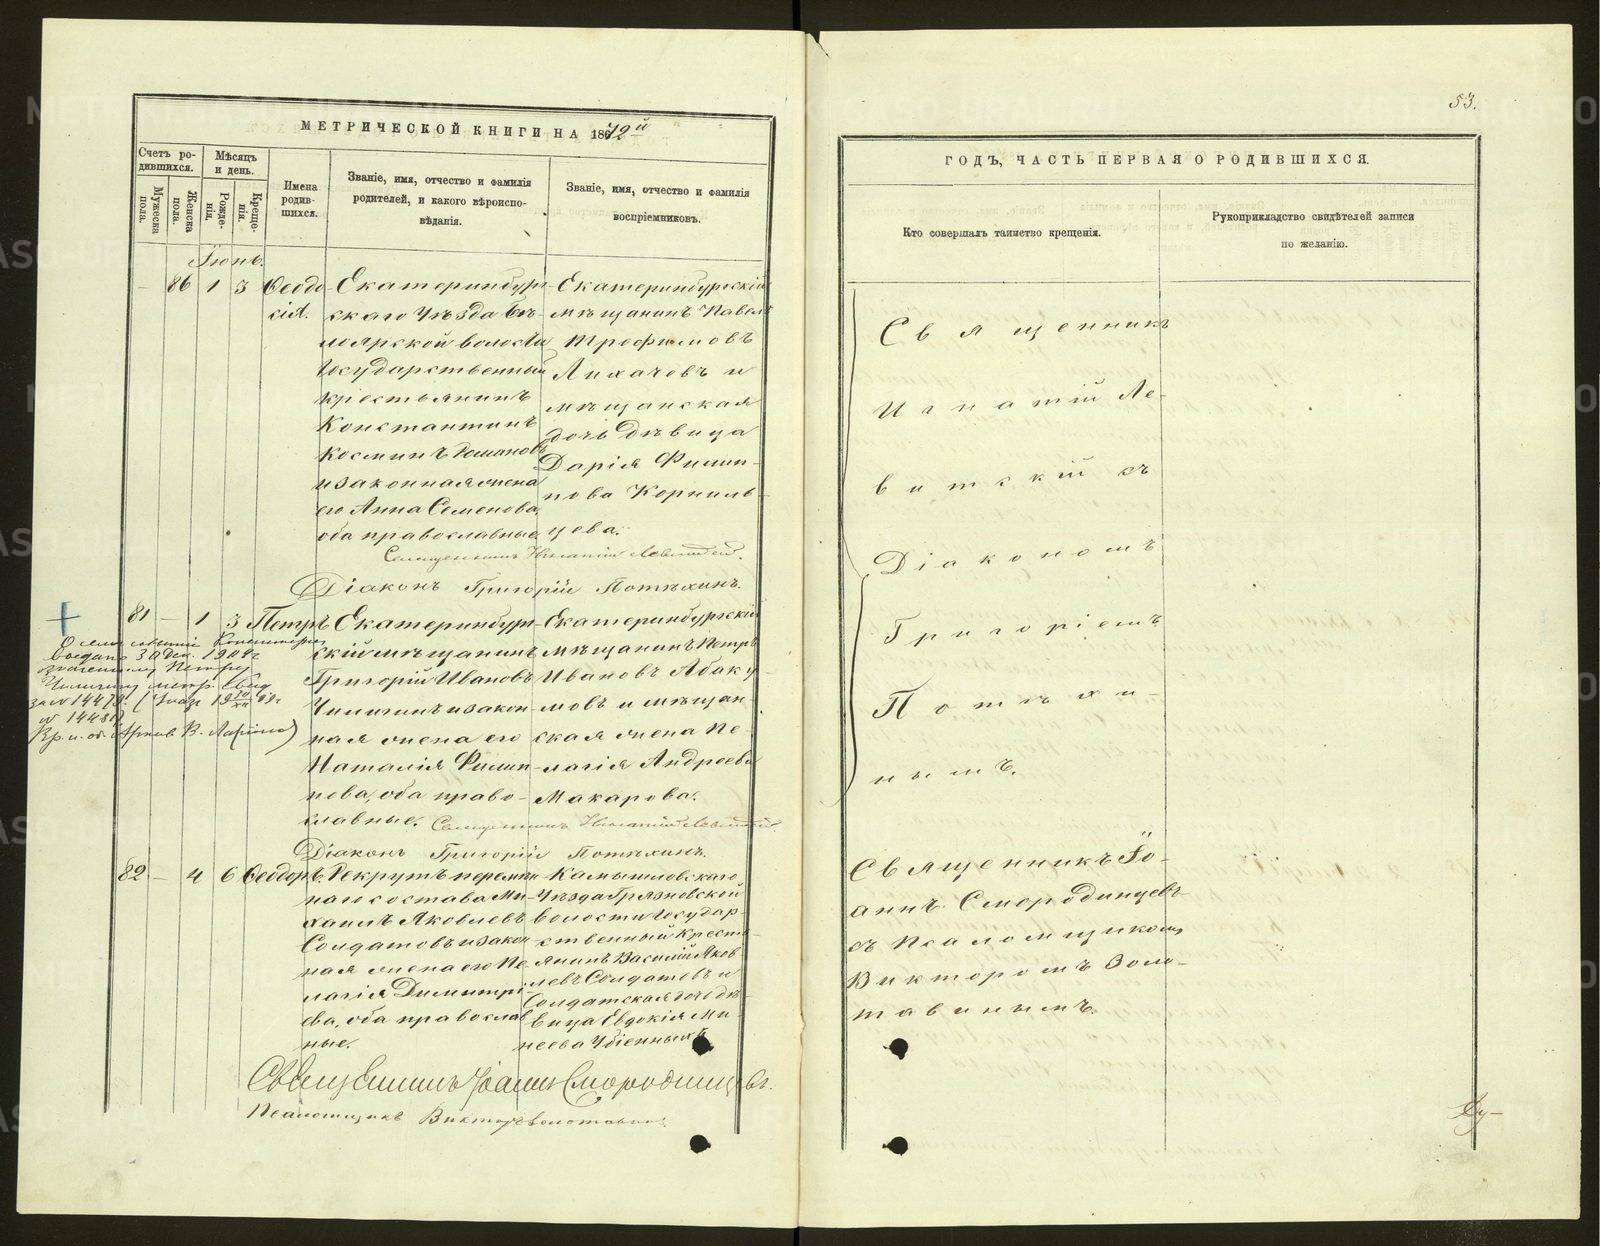 МЕТРИЧЕСКОЙ КНИГИ НА 1872й
Счетъ ро-
дившихся.
Мѣсяцъ
и день.
Мужеска
пола.
Женска
пола.
Рожде-
нія.
Креще-
нія.
Имена
родив-
шихся.
Званіе, имя, отчество и фамилія
родителей, и какого вѣроиспо-
вѣданія.
Званіе, имя, отчество и фамилія
воспріемниковъ.
Іюнь.
86 1 3 Ѳеодо-
сія.
Екатеринбург-
скаго Уѣзда Бѣ-
лоярской волости
Государственный
крестьянинъ
Константинъ
Космин
и законная жена
его Анна Семенова,
оба православные.
Екатеринбургскій
мѣщанинъ Павелъ
Трофимовъ
Лихачевъ и
мѣщанская
дочь дѣвица
Дарія Филип-
пова Корниль-
цева.
Священникъ Игнатій Левитскій.
Діаконъ Григорій Потѣхинъ.
81 — 1 3 Петръ
Екатеринбург-
скій мѣщанинъ
Григорій Ивановъ
Чиличинъ и закон-
ная жена его
Наталія Филип-
пова, оба право-
славные.
Екатеринбургскій
мѣщанинъ Петръ
Ивановъ Абаку-
мовъ и мѣщан-
ская жена Пе-
лагія Андреева
Макарова.
Священникъ Игнатій Левитскій.
Діаконъ Григорій Потѣхинъ.
82 — 4 6 Ѳеодоръ.
Рекрутъ перемѣн-
наго состава Ми-
хаилъ Яковлевъ
Солдатовъ и закон-
ная жена его Пе-
лагія Димитрі-
ева, оба православ-
ные.
Камышловскаго
Уѣзда Грязновской
волости Государ-
ственный кресть-
янинъ Василій Яков-
левъ Солдатовъ и
Солдатская дочь дѣ-
вица Евдокія Ми-
неева Убіенныхъ
Священникъ Іоаннъ Смородинцевъ.
Псаломщикъ Викторъ Золотавинъ.
53.
ГОДЪ, ЧАСТЬ ПЕРВАЯ О РОДИВШИХСЯ.
Кто совершалъ таинство крещенія.
Рукоприкладство свидѣтелей записи
по желанію.
Священникъ
Игнатій Ле-
витскій съ
Діакономъ
Григоріемъ
Потѣхи-
нымъ.
Священникъ Іо-
аннъ Смородинцевъ
съ Псаломщикомъ
Викторомъ Золо-
тавинымъ.